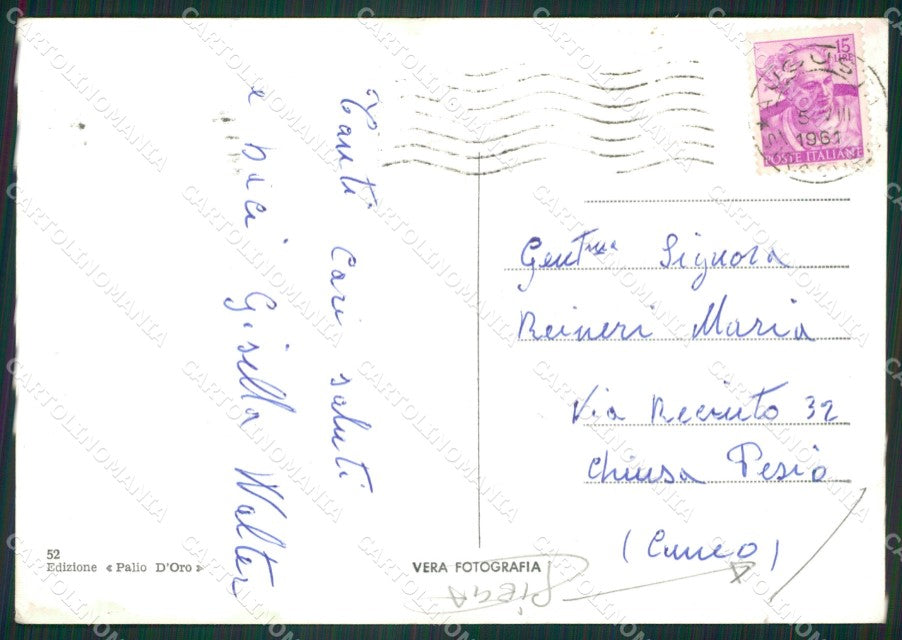 Tanti cari saluti
e baci Gisella Walter
15
LIRE
1961
POSTE ITALIANE
Gent.ma Signora
Reineri Maria
Via Recinto 32
Chiusa Pesio
(Cuneo)
52
Edizione « Palio D'Oro »
VERA FOTOGRAFIA
PIEGA
CARTOLINOMANIA